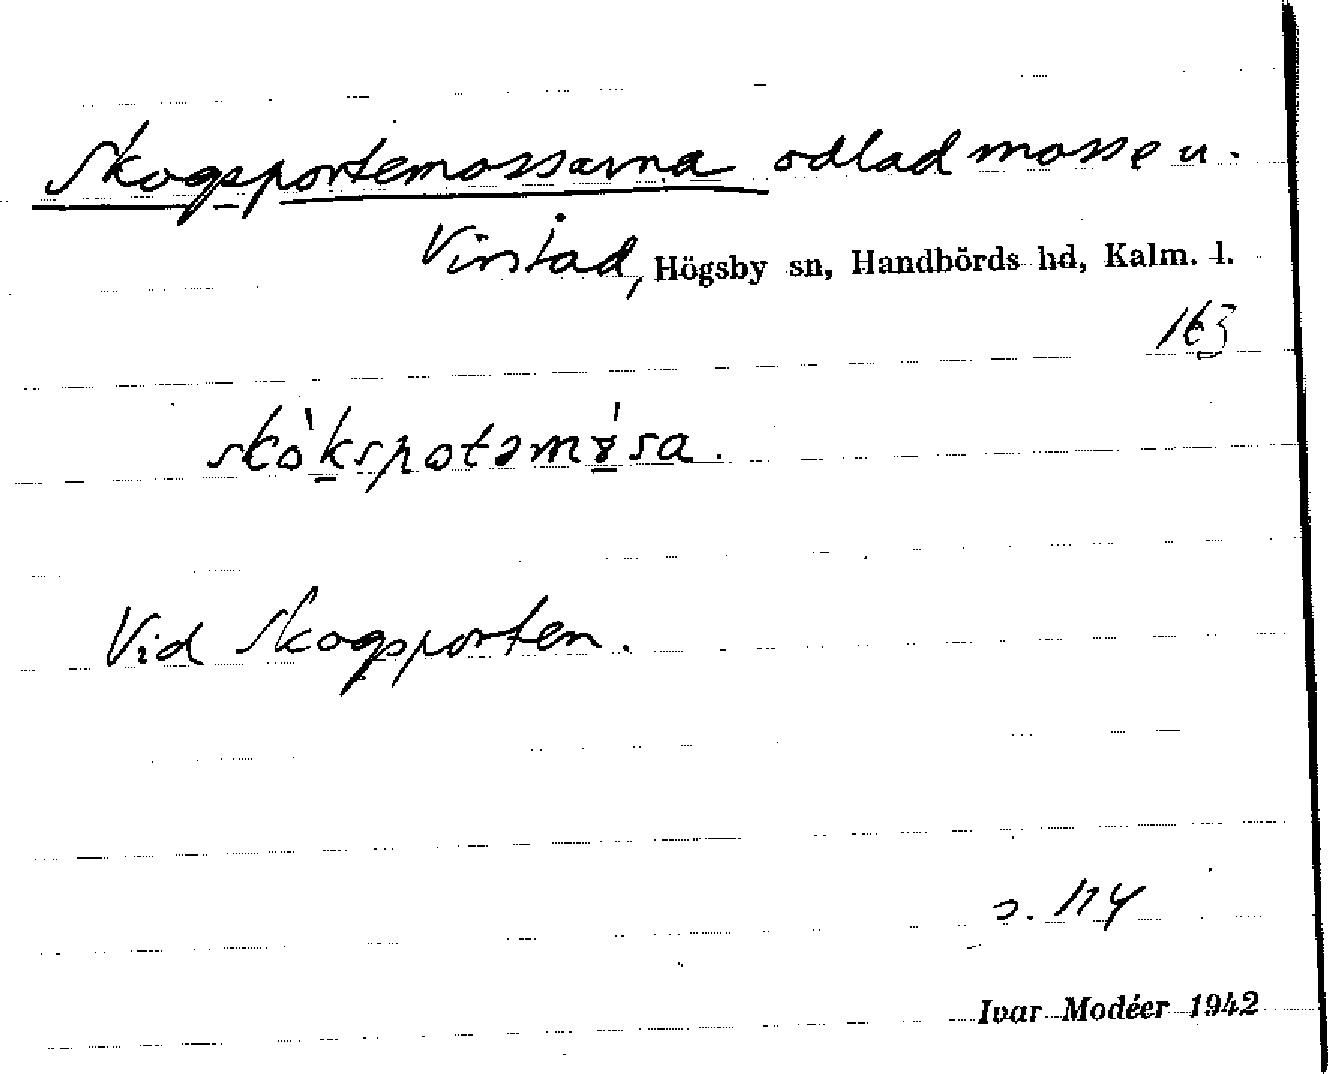 Skogsportemossarna odlad mosse u.
Virstad, Högsby sn, Handbörds hd, Kalm. l.
163
skò̱kspotəmɤ̱́sa.
Vid Skogsporten.
s. 114
Ivar Modéer 1942